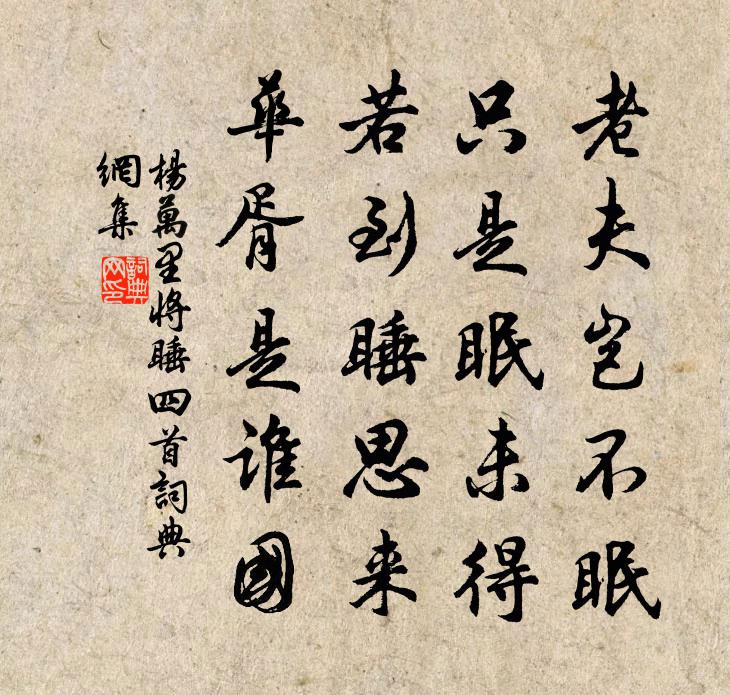 老夫岂不眠
只是眠未得
若到睡思来
華胥是谁國
楊萬里将睡四首詞典
網集
詞典網印